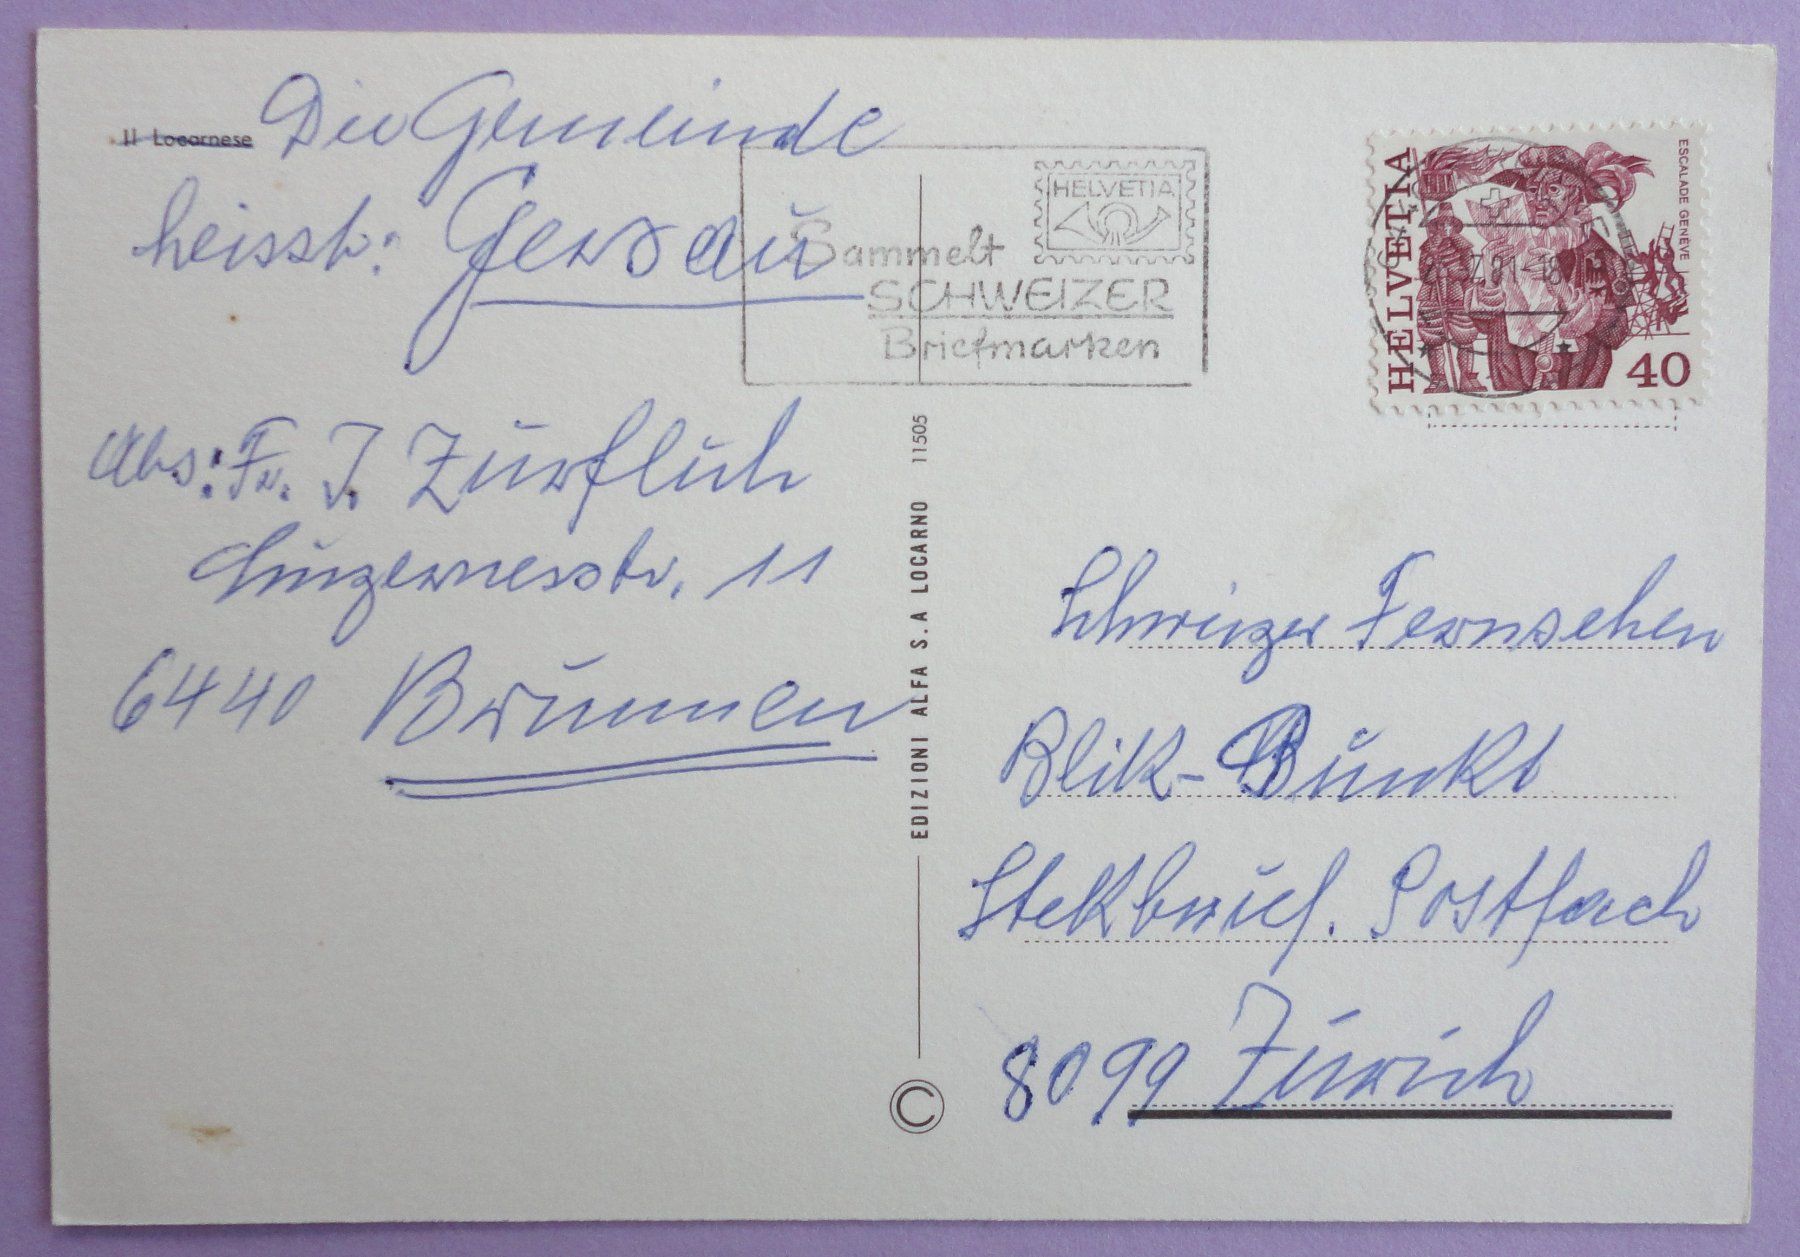 Il Locarnese
Die Gemeinde
heisst: Gersau
Abs: Fr. J. Zurfluh
Luzernerstr. 11
6440 Brunnen
HELVETIA
Sammelt
SCHWEIZER
Briefmarken
EDIZIONI ALFA S.A LOCARNO 11505
©
HELVETIA
ESCALADE GENÈVE
40
81-18
Schweizer Fernsehen
Blik-Bunkt
Stekbrief. Postfach
8099 Zürich